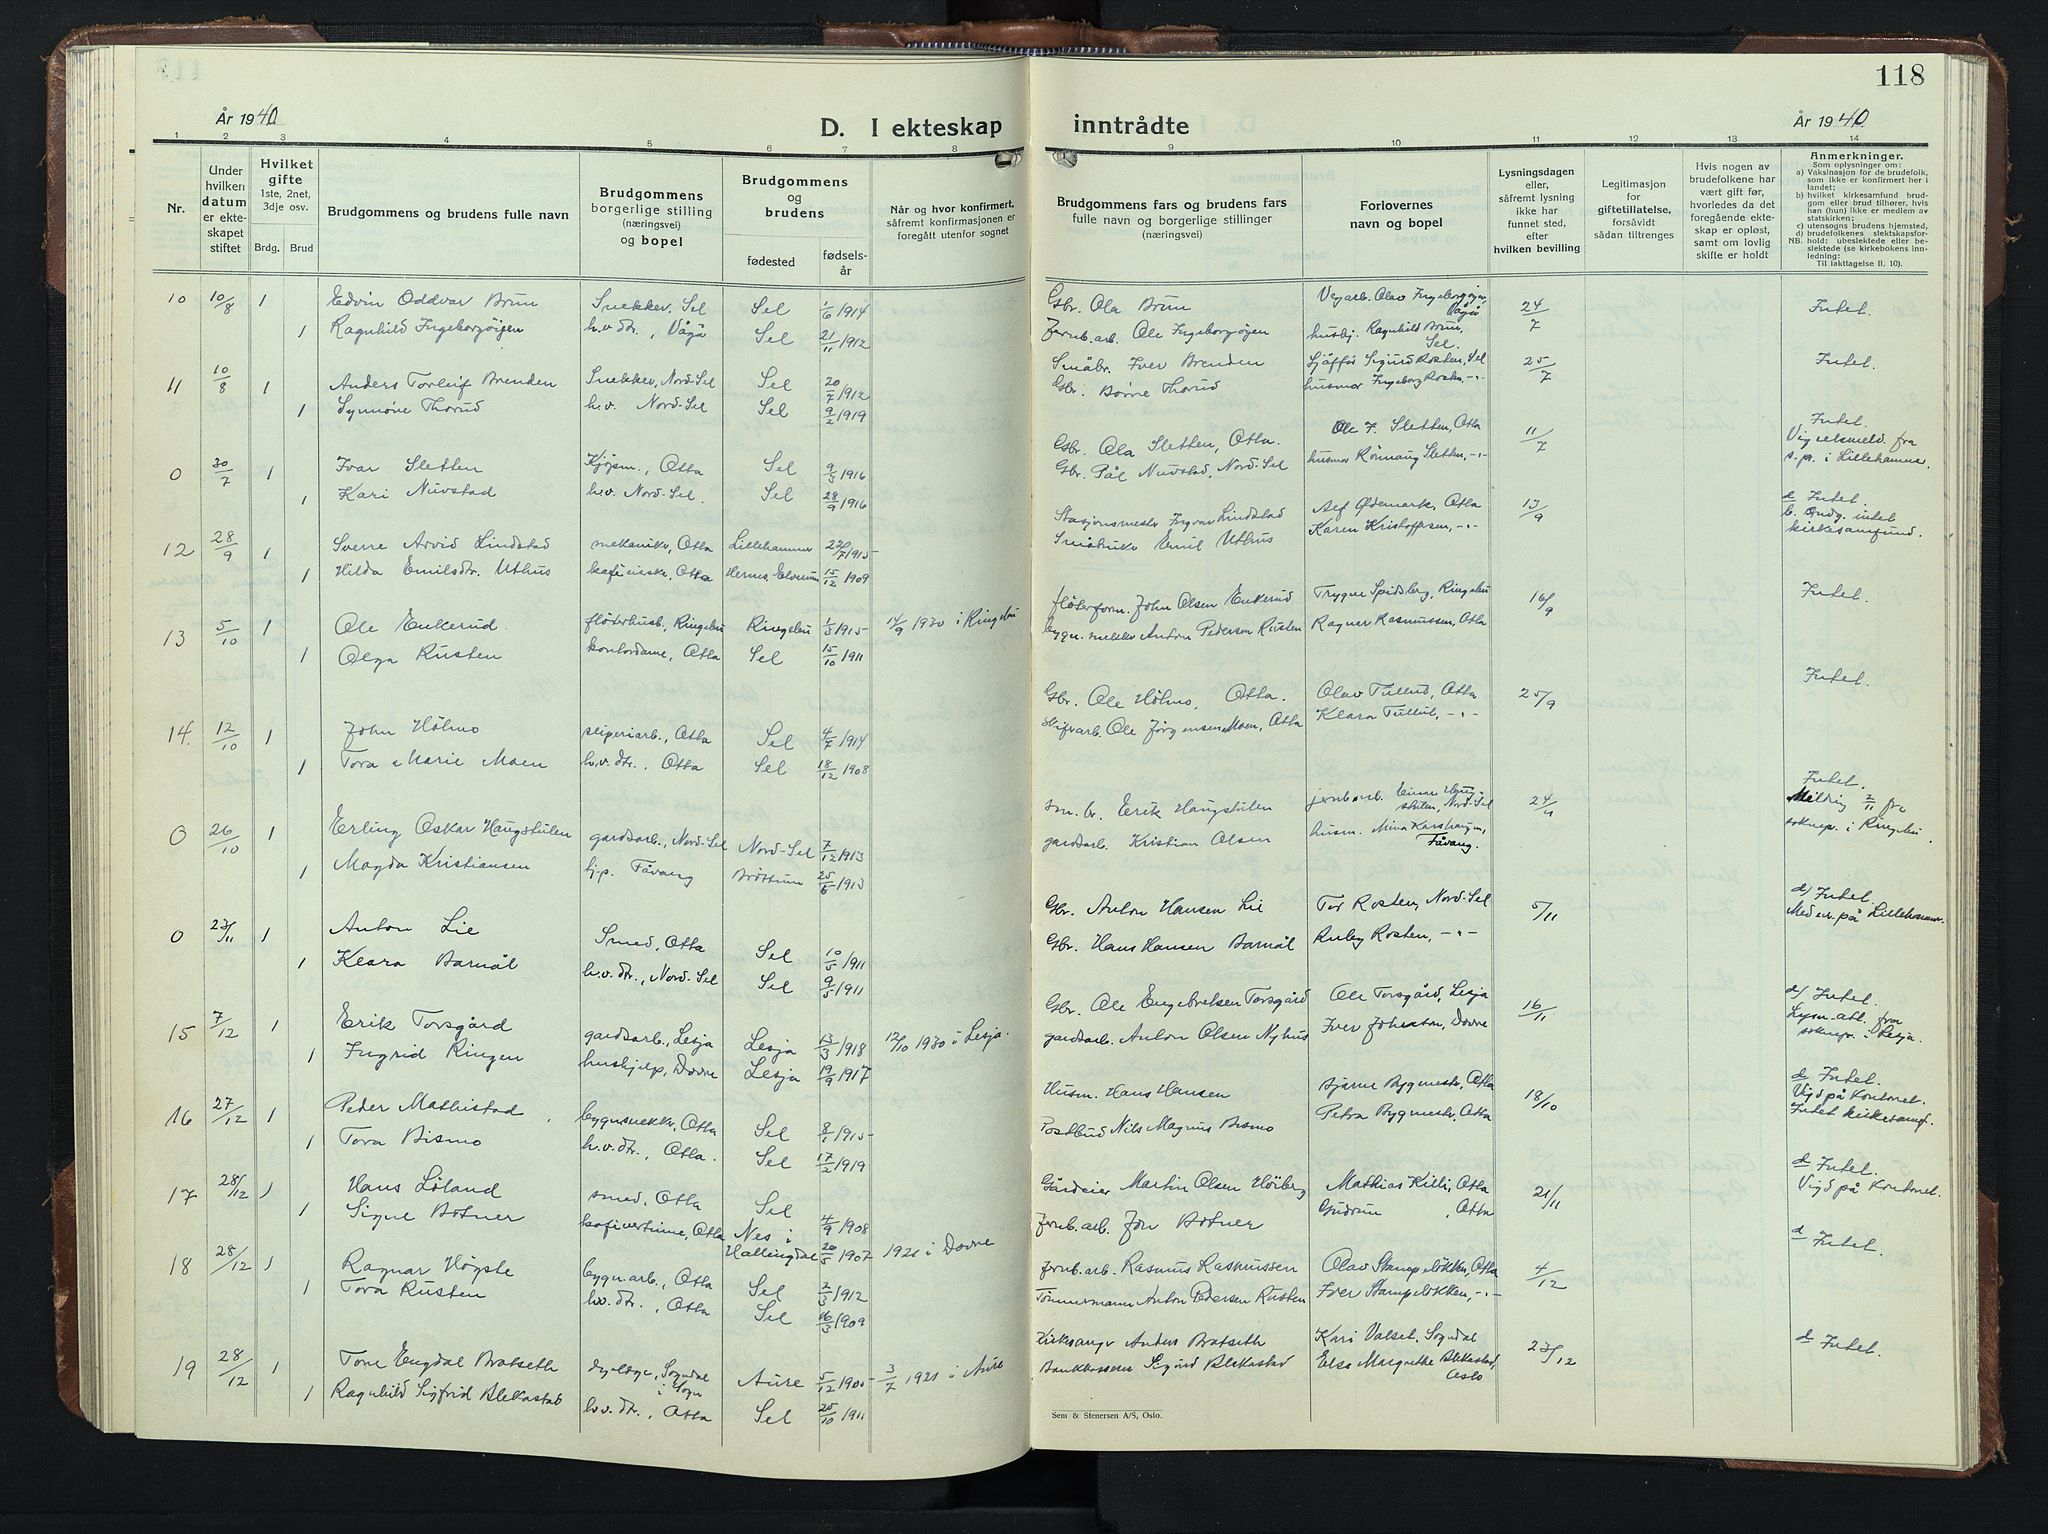 118
År 1940.
D. I ekteskap inntrådte
År 1940.
1 2 3 4 5 6 7 8 9 10 11 12 13 14
Nr.
Under hvilken datum er ekteskapet stiftet
Hvilket gifte 1ste, 2net, 3dje osv. Brdg. Brud
Brudgommens og brudens fulle navn
Brudgommens borgerlige stilling (næringsvei) og bopel
Brudgommens og brudens fødested fødselsår
Når og hvor konfirmert, såfremt konfirmasjonen er foregått utenfor sognet
Brudgommens fars og brudens fars fulle navn og borgerlige stillinger (næringsvei)
Forlovernes navn og bopel
Lysningsdagen eller, såfremt lysning ikke har funnet sted, efter hvilken bevilling
Legitimasjon for giftetillatelse, forsåvidt sådan tiltrenges
Hvis nogen av brudefolkene har vært gift før, hvorledes da det foregående ekteskap er opløst, samt om lovlig skifte er holdt
Anmerkninger.
Som oplysninger om:
a) Vaksinasjon for de brudefolk, som ikke er konfirmert her i landet;
b) hvilket kirkesamfund brudgom eller brud tilhører, hvis han (hun) ikke er medlem av statskirken;
c) utensogns brudens hjemsted,
d) brudefolkenes slektskapsforhold: ubeslektede eller beslektede (se kirkebokens innledning:
NB.
Til iakttagelse II. 10).
10 10/8 1 Edvin Oddvar Brun Snekker, Sel Sel 1/6 1914 Gbr. Ola Brun Vegarb. Olav Ingeborgøyen, Vågå 24/7 Intet.
1 Ragnhild Ingeborgøyen h.v. dtr., Vågå Sel 21/11 1912 Jernb.arb. Ole Ingeborgøyen husbj. Ragnhild Brun, Sel.
11 10/8 1 Anders Torleif Brenden Snekker, Nord-Sel Sel 20/7 1912 Småbr. Iver Brenden Sjåffør Sigurd Rosten, Sel 25/7 Intet.
1 Synnøve Thorud h.v. Nord-Sel Sel 9/2 1919 Gbr. Børre Thorud husmor Ingeborg Rosten, -"-
0 30/7 1 Ivar Sletten Kjøpm., Otta Sel 9/3 1916 Gbr. Ola Sletten, Otta. Ole J. Sletten, Otta 11/7 Intet. Vigselsmeld. fra s.pr. i Lillehammer.
1 Kari Nuvstad h.v. Nord-Sel. Sel 28/9 1916 Gbr. Pål Nuvstad, Nord-Sel husmor Rönnaug Sletten, -"-
12 28/9 1 Sverre Arvid Lindstad mekaniker, Otta Lillehammer 22/7 1915 Stasjonsmester Ingvar Lindstad Alf Ødemark, Otta 13/9 d Intet. b. Brudg. intet kirkesamfund.
1 Hilda Emilsdtr. Uthus Otta Hernes, Elverum 15/12 1909 Småbruker Emil Uthus Karen Kristoffersen, -"-
13 5/10 1 Ole Enkerud fløterhusb., Ringebu Ringebu 1/3 1915 14/9 1930 i Ringebu fløterform. John Olsen Enkerud Trygve Spidsberg, Ringebu 16/9 Intet.
1 Olga Rusten kontordame, Otta Sel 15/10 1911 bygn.snekker Anton Pedersen Rusten Ragnar Rasmussen, Otta
14. 12/10 1 John Hölmo Otta Sel 4/7 1914 Gbr. Ole Hölmo, Otta. Olav Tullud, Otta 25/9 Intet.
1 Tora Marie Moen h.v. dtr., Otta Sel 18/12 1908 Skifrarb. Ole Jörgensen Moen, Otta Klara Tullud, -"-
0 26/10 1 Erling Oskar Haugstulen gardsarb., Nord-Sel Nord-Sel 7/12 1913 sm. br. Erik Haugstulen jernb.arb. Einar Haugstulen, Nord-Sel 24/9 Intet. Melding 2/11 fra soknepr. i Ringebu
1 Magda Kristiansen hj.p. Fåvang Brøttum 25/6 1913 gardsarb. Kristian Olsen husm. Mina Karshaugen, Fåvang.
0 23/11 1 Anton Lie Smed, Otta Sel 10/5 1911 Gbr. Anton Hansen Lie Tor Rosten, Nord-Sel 5/11 d) Intet. på Lillehammer
1 Klara Barnål h.v. dtr., Nord-Sel Sel 9/5 1911 Gbr. Hans Hansen Barnål Ruby Rosten, -"-
15 7/12 1 Erik Torsgård gardsarb., Lesja Lesja 13/3 1918 12/10 1930 i Lesja. Gbr. Ole Engebretsen Torsgård Ole Torsgård, Lesja 16/11 d) Intet. Lysn.att. fra soknepr. i Lesja.
1 Ingrid Ringen hushjelp, Dovre Lesja 19/9 1917 gardsarb. Anton Olsen Nyhus Iver Johnson, Dovre
16 27/12 1 Peder Mathistad bygn.snekker, Otta Sel 8/1 1915 Husm. Hans Hansen Bjarne Bygmestr, Otta 18/10 d Intet. Vigd på Kontoret. Intet kirkesamf.
1 Tora Bismo h.v. dtr., Otta. Sel 17/2 1919 Postbud Nils Magnus Bismo Petra Bygmestr, Otta
17 28/12 1 Hans Löland smed, Otta Sel 4/9 1908 Gårdeier Martin Olsen Höiberg Mathias Killi, Otta 21/11 d Intet. Vigd på Kontoret.
1 Signe Botner kafévertinne, Otta Nes i Hallingdal 20/5 1907 1921 i Dovre Jernb. arb. Jon Botner Gudrun , Otta
18 28/12 1 Ragnar Högste bygn.arb., Otta Sel 2/3 1912 Jernb. arb. Rasmus Rasmussen Olav Stampeløkken, Otta 4/12 d Intet.
1 Tora Rusten h.v. dtr., Otta Sel 16/3 1909 Tømmermann Anton Pedersen Rusten Iver Stampeløkken, -"-
19 28/12 1 Tore Engdal Bratseth dyrlege, Sogndal i Sogn Aure 5/12 1905 3/7 1921 i Aure Kirkesanger Anders Bratseth Kari Valset, Sogndal 23/12 d Intet.
1 Ragnhild Sigfrid Blekastad h.v. dtr., Otta Sel 25/10 1911 Bankkasserer Sigurd Blekastad Else Margrethe Blekastad, Oslo
Sem & Stenersen A/S, Oslo.